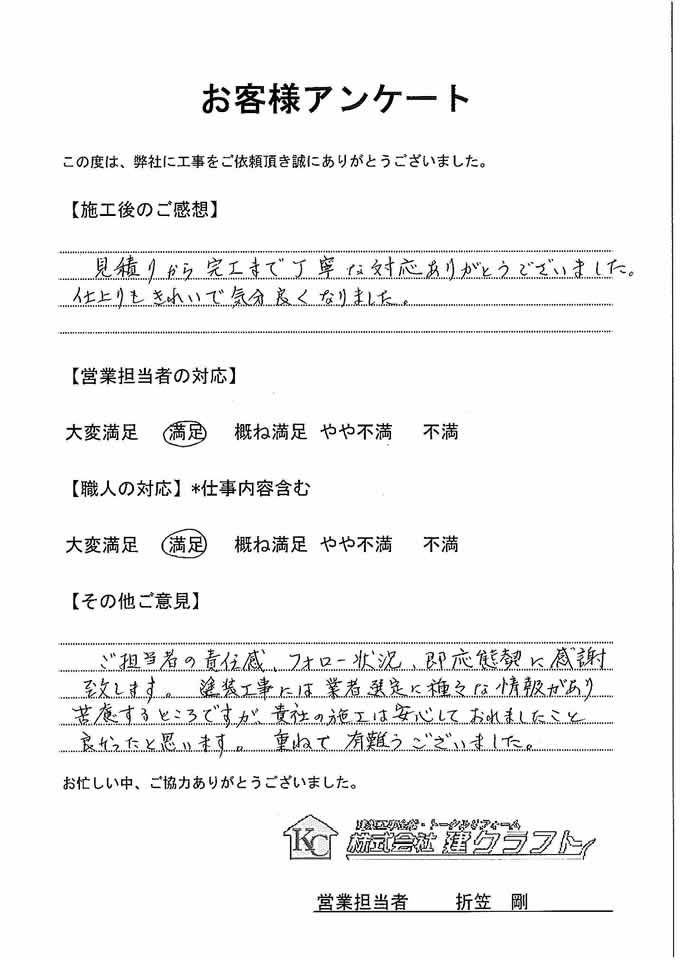 お客様アンケート
この度は、弊社に工事をご依頼頂き誠にありがとうございました。
【施工後のご感想】
見積りから完工まで丁寧な対応ありがとうございました。
仕上りもきれいで気分良くなりました。
【営業担当者の対応】
大変満足 満足 概ね満足 やや不満 不満
【職人の対応】*仕事内容含む
大変満足 満足 概ね満足 やや不満 不満
【その他ご意見】
ご担当者の責任感、フォロー状況、即応態勢に感謝
致します。 塗装工事には業者選定に種々な情報があり
苦慮するところですが、貴社の施工は安心しておれましたこと
良かったと思います。 重ねて有難うございました。
お忙しい中、ご協力ありがとうございました。
KC
トータルリフォーム
株式会社 建クラフト
営業担当者 折笠 剛